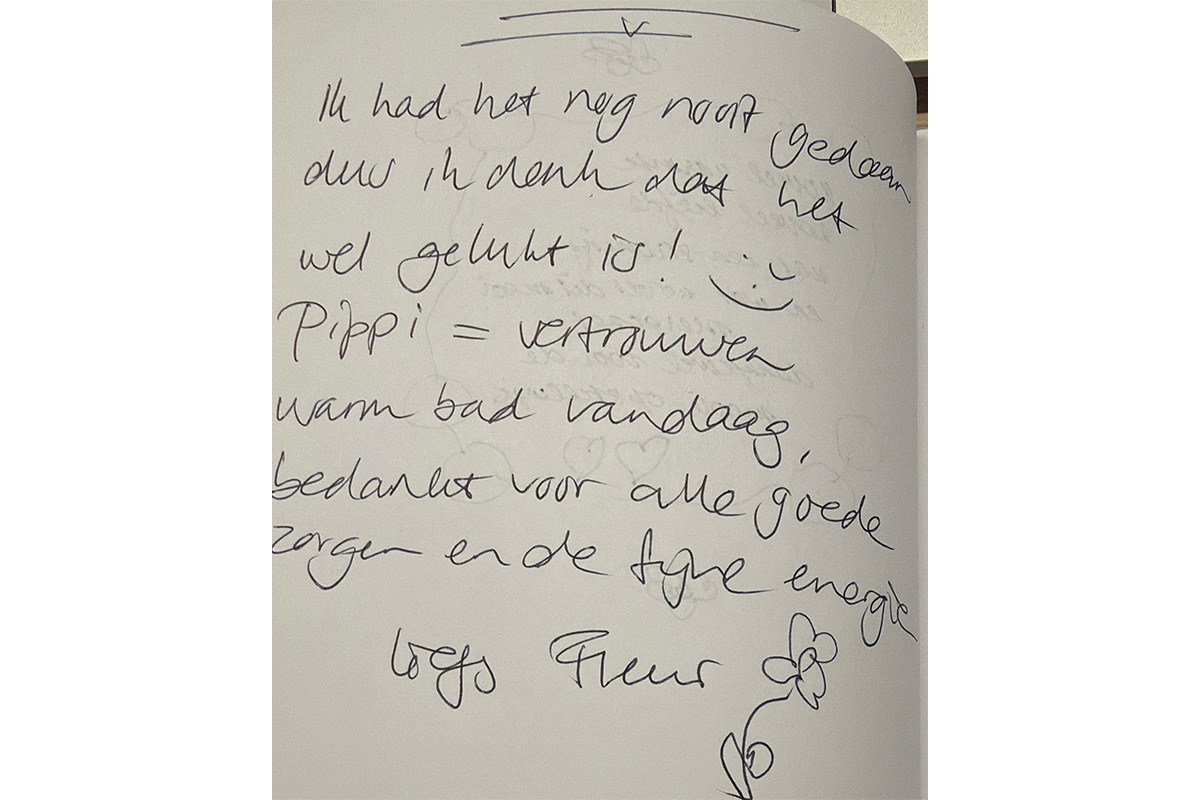 Ik had het nog nooit gedaan
dus ik denk dat het
wel gelukt is! :)
Pippi = vertrouwen
warm bad vandaag,
bedankt voor alle goede
zorgen en de fijne energie
liefs Fleur